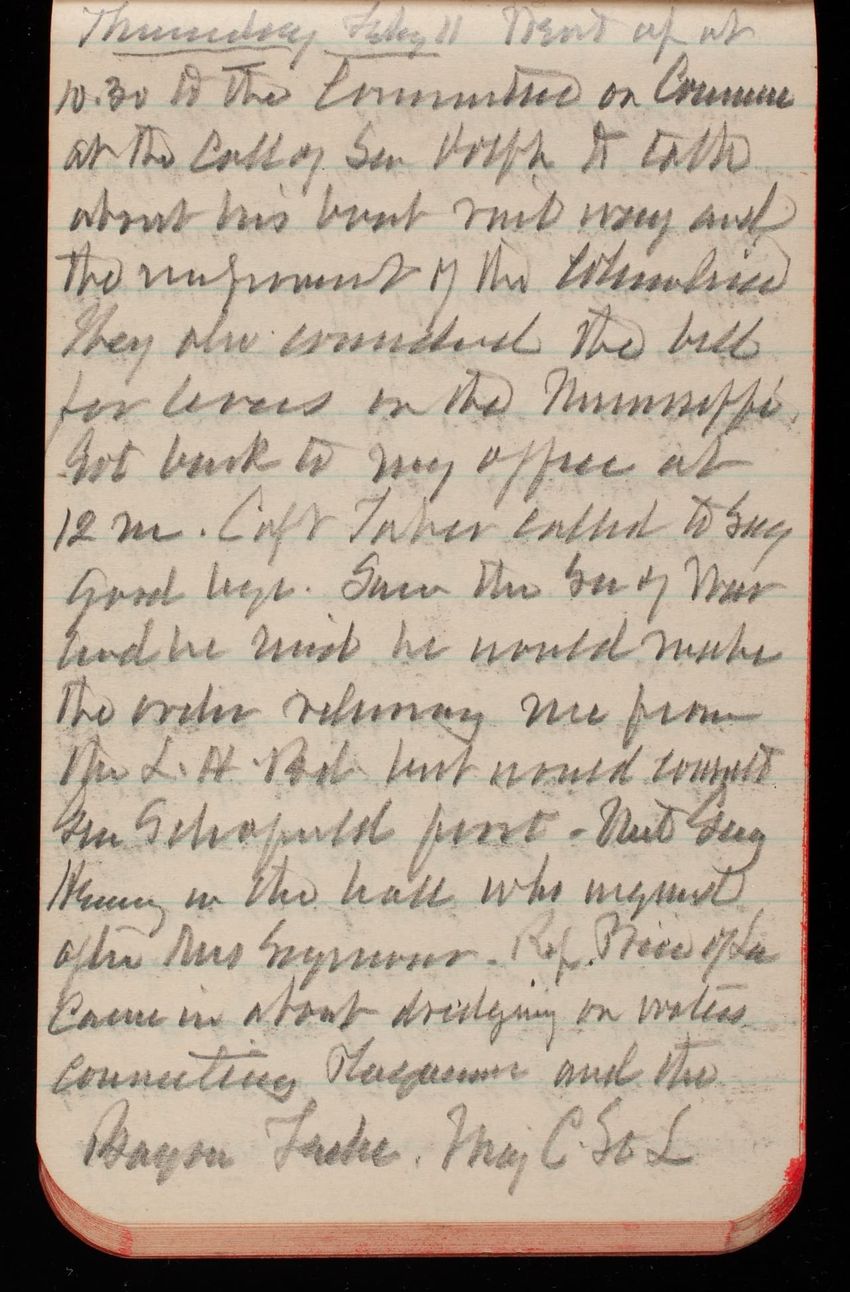 Thursday Feby 11 Went up at
10.30 to the Committee on Commerce
at the call of Sen Dolph to talk
about his boat rail way and
the improvement of the Columbia
They also considered the bill
for levees on the Mississippi.
Got back to my office at
12 m. Capt Taber called to say
good bye. Saw the Sec of War
and he said he would make
the order relieving me from
the L. H. Bd. but would consult
Gen Schofield first - Met Guy
Henry in the hall who inquired
after Mrs Seymour - Rep. Price of La
came in about dredging on waters
connecting Plaquemine and the
Bayou Teche. Maj C. St L